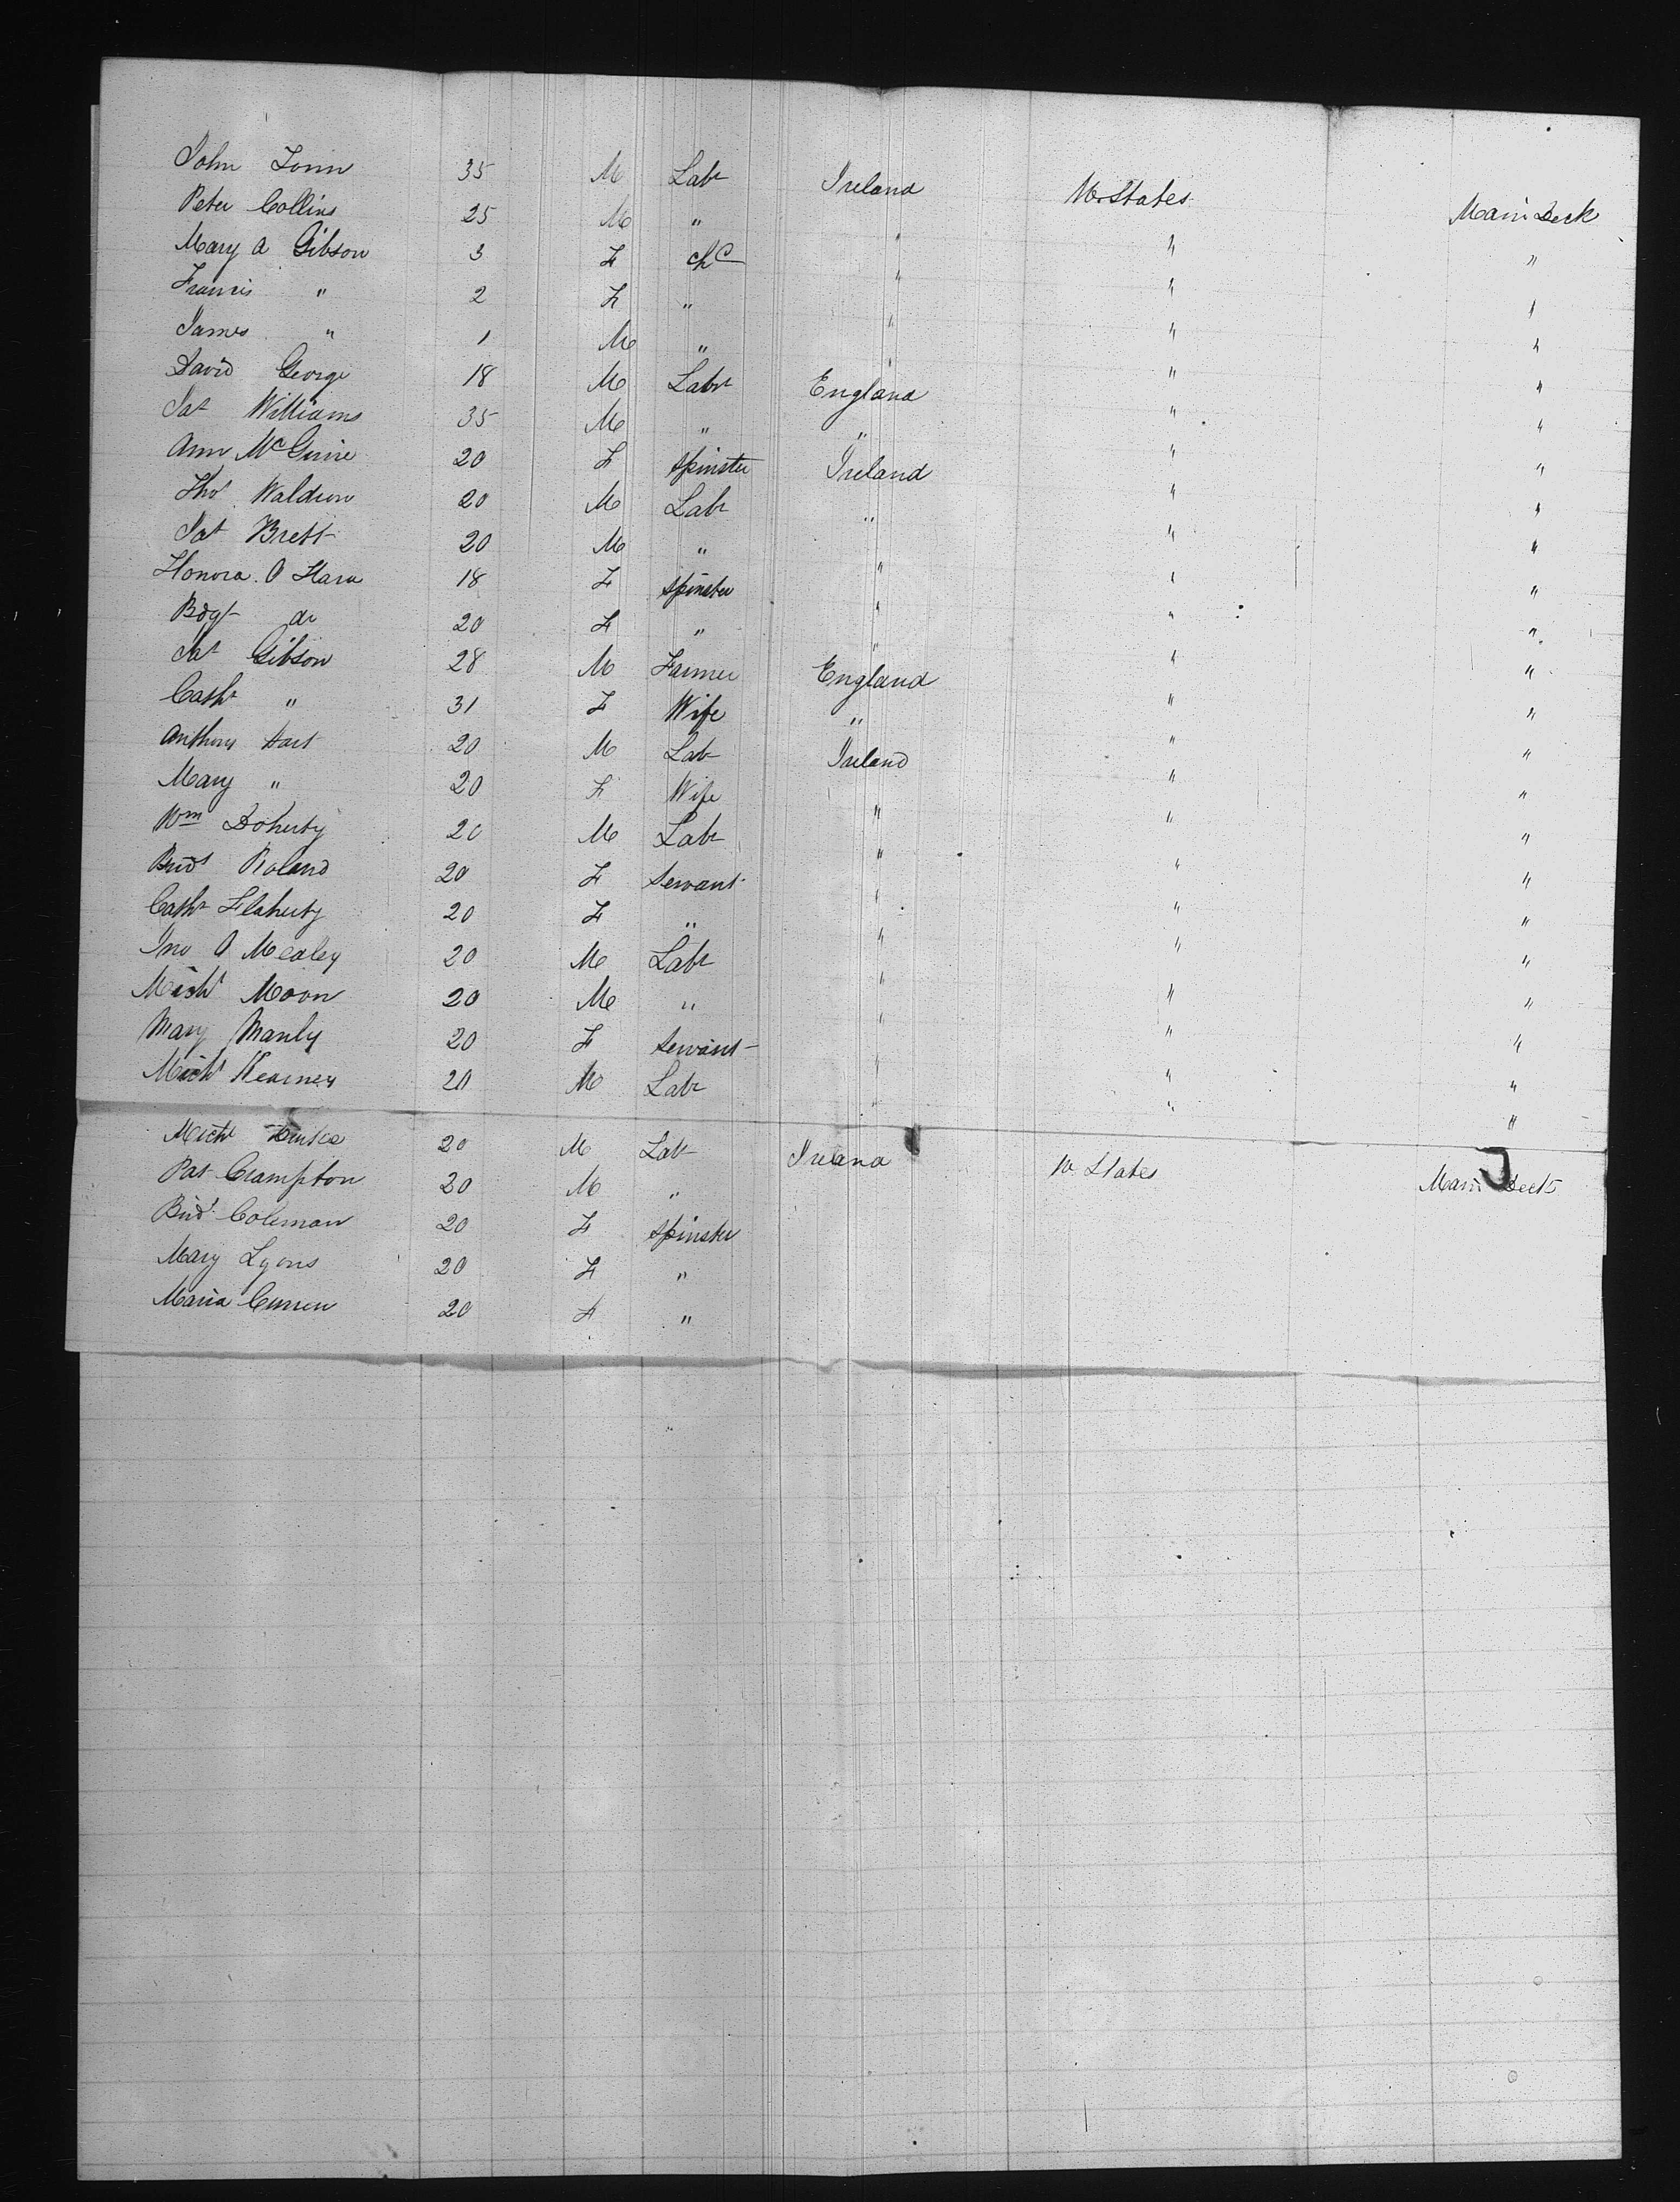 John 35 M Labr Ireland U States Main Deck
Peter Collins 25 M " " " "
Mary A Gibson 3 F chd " " "
Francis " 2 F " " " "
James " 1 M " " " "
David George 18 M Labr England " "
Pat Williams 35 M " " " "
Ann McGuire 20 F Spinster Ireland " "
Thos Waldron 20 M Labr " " "
Pat Brett 20 M " " " "
Honora O Hara 18 F Spinster " " "
Bdgt do 20 F " " " "
Pat Gibson 28 M Farmer England " "
Cathe " 31 F Wife " " "
Anthony Hart 20 M Labr Ireland " "
Mary " 20 F Wife " " "
Wm Doherty 20 M Labr " " "
Bridt Roland 20 F Servant " " "
Cathe Flaherty 20 F " " " "
Jno O Mealey 20 M Labr " " "
Michl Moon 20 M " " " "
Mary Manly 20 F Servant " " "
Michl Kearney 20 M Labr " " "
Michl 20 M Labr Ireland U States Main Deck
Pat Crampton 20 M "
Bridt Coleman 20 F Spinster
Mary Lyons 20 F "
Maria Curren 20 F "